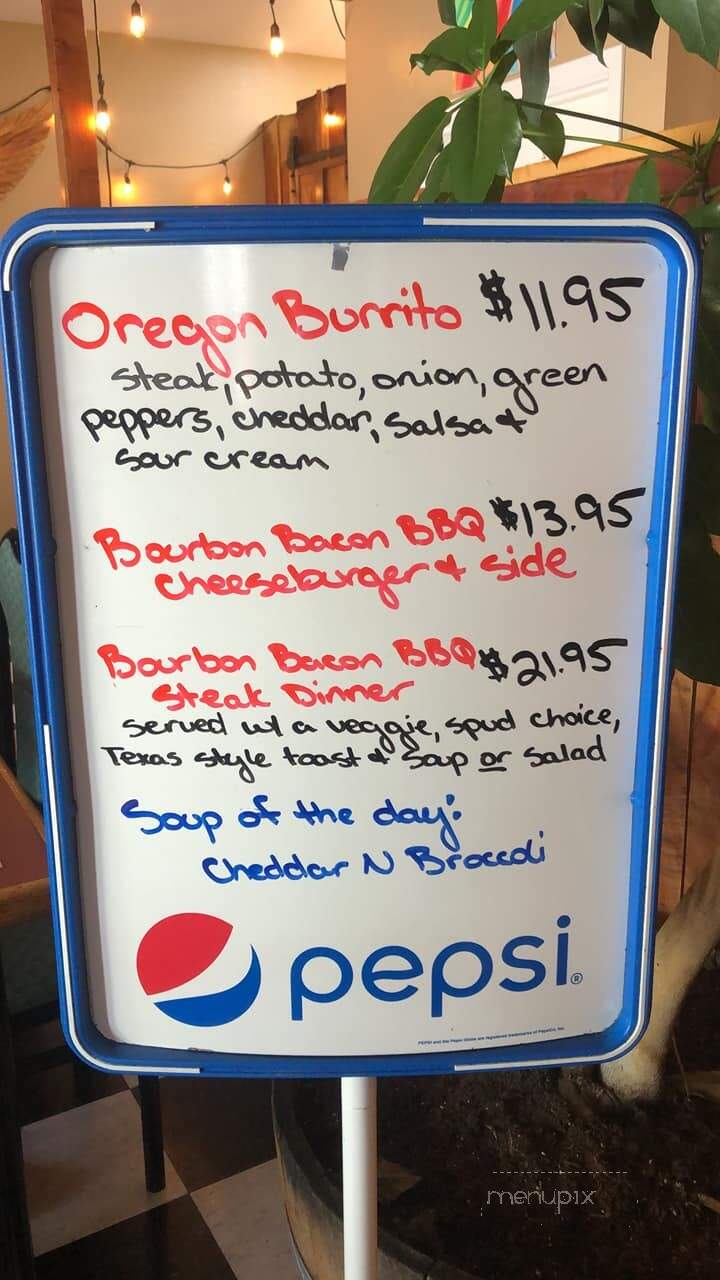 Oregon Burrito $11.95
steak, potato, onion, green
peppers, cheddar, salsa &
sour cream
Bourbon Bacon BBQ $13.95
cheeseburger & side
Bourbon Bacon BBQ $21.95
Steak Dinner
served w/ a veggie, spud choice,
Texas style toast & Soup or Salad
Soup of the day:
Cheddar N Broccoli
pepsi®
PEPSI and the Pepsi Globe are registered trademarks of PepsiCo, Inc.
menupix